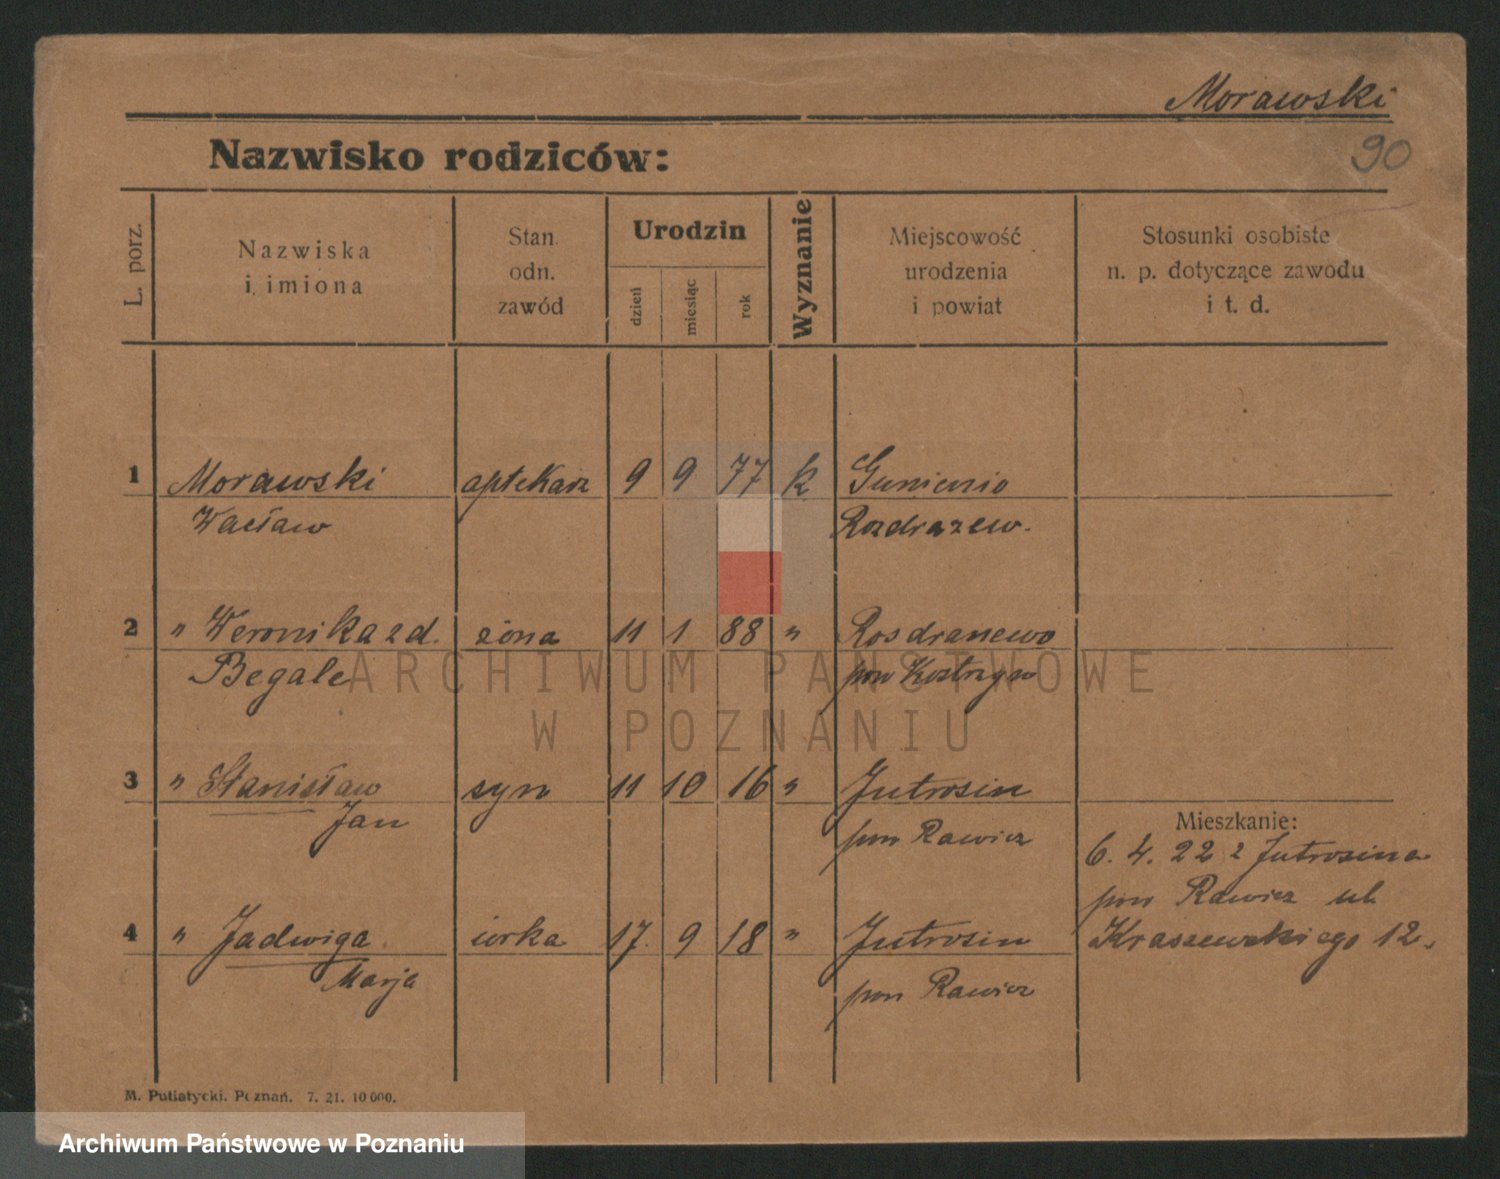 Morawski
90
Nazwisko rodziców:
L. porz.
Nazwiska
i imiona
Stan
odn.
zawód
Urodzin
dzień
miesiąc
rok
Wyznanie
Miejscowość
urodzenia
i powiat
Stosunki osobiste
n. p. dotyczące zawodu
i t. d.
1 Morawski aptekarz 9 9 77 k
Wacław Rozdrazew.
2 " Weronika zd. żona 11 1 88 " Rosdranewo
Begale pow Kostrzyn
3 " Stanisław syn 11 10 16 " Jutrosin
Jan pow Rawicz
Mieszkanie:
6. 4. 22 z Jutrosina
pow Rawicz ul.
4 " Jadwiga córka 17. 9 18 " Jutrosin Kraszewskiego 12.
Marja pow Rawicz
M. Putiatycki. Poznań. 7. 21. 10 000.
ARCHIWUM PAŃSTWOWE
W POZNANIU
Archiwum Państwowe w Poznaniu